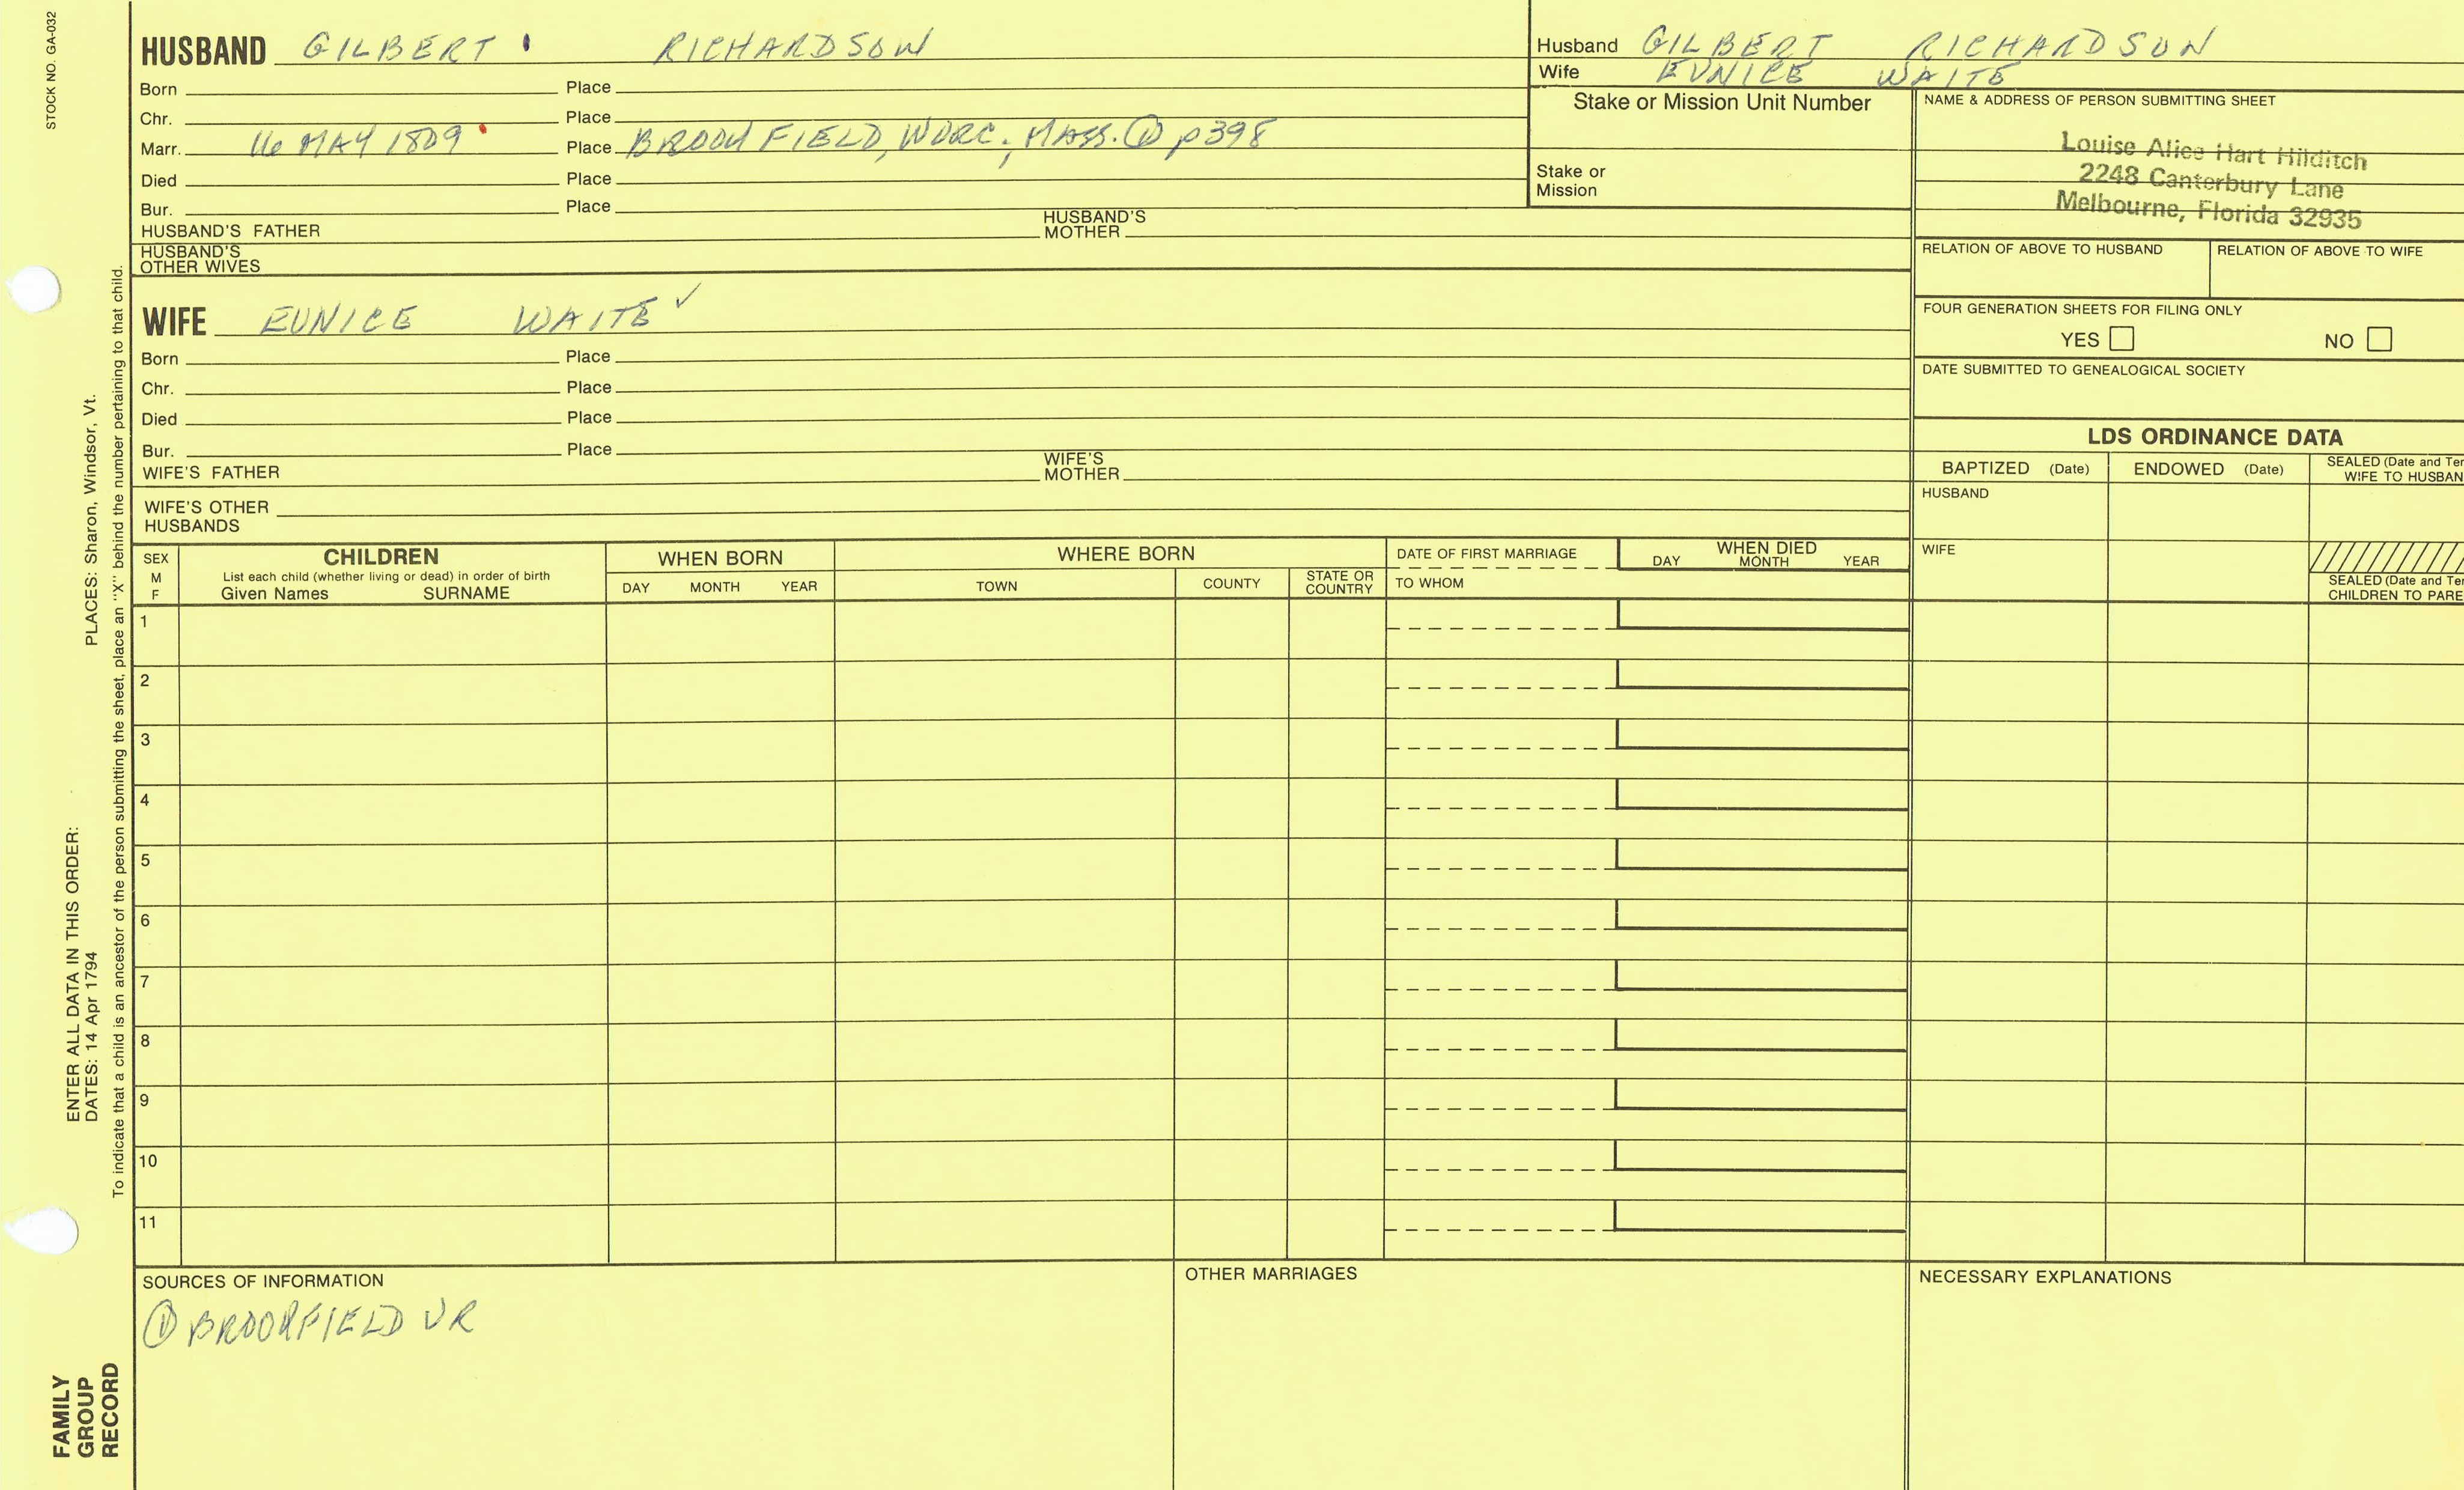 STOCK NO. GA-032
HUSBAND GILBERT RICHARDSON
Born Place
Chr. Place
Marr. 16 MAY 1809 Place BROOKFIELD, WORC., MASS. ① p398
Died Place
Bur. Place
HUSBAND'S FATHER HUSBAND'S MOTHER
HUSBAND'S OTHER WIVES
Husband GILBERT RICHARDSON
Wife EUNICE WAITE
Stake or Mission Unit Number
Stake or
Mission
NAME & ADDRESS OF PERSON SUBMITTING SHEET
Louise Alice Hart Hilditch
2248 Canterbury Lane
Melbourne, Florida 32935
RELATION OF ABOVE TO HUSBAND RELATION OF ABOVE TO WIFE
FOUR GENERATION SHEETS FOR FILING ONLY
YES NO
DATE SUBMITTED TO GENEALOGICAL SOCIETY
WIFE EUNICE WAITE ✓
Born Place
Chr. Place
Died Place
Bur. Place
WIFE'S FATHER WIFE'S MOTHER
WIFE'S OTHER
HUSBANDS
LDS ORDINANCE DATA
BAPTIZED (Date) ENDOWED (Date) SEALED (Date and Tem
WIFE TO HUSBAN
HUSBAND
WIFE
SEALED (Date and Tem
CHILDREN TO PARE
SEX
M
F
CHILDREN
List each child (whether living or dead) in order of birth
Given Names SURNAME
WHEN BORN
DAY MONTH YEAR
WHERE BORN
TOWN COUNTY STATE OR COUNTRY
DATE OF FIRST MARRIAGE
TO WHOM
WHEN DIED
DAY MONTH YEAR
1
2
3
4
5
6
7
8
9
10
11
SOURCES OF INFORMATION
① BROOKFIELD VR
OTHER MARRIAGES
NECESSARY EXPLANATIONS
ENTER ALL DATA IN THIS ORDER:
DATES: 14 Apr 1794 PLACES: Sharon, Windsor, Vt.
To indicate that a child is an ancestor of the person submitting the sheet, place an "X" behind the number pertaining to that child.
FAMILY
GROUP
RECORD